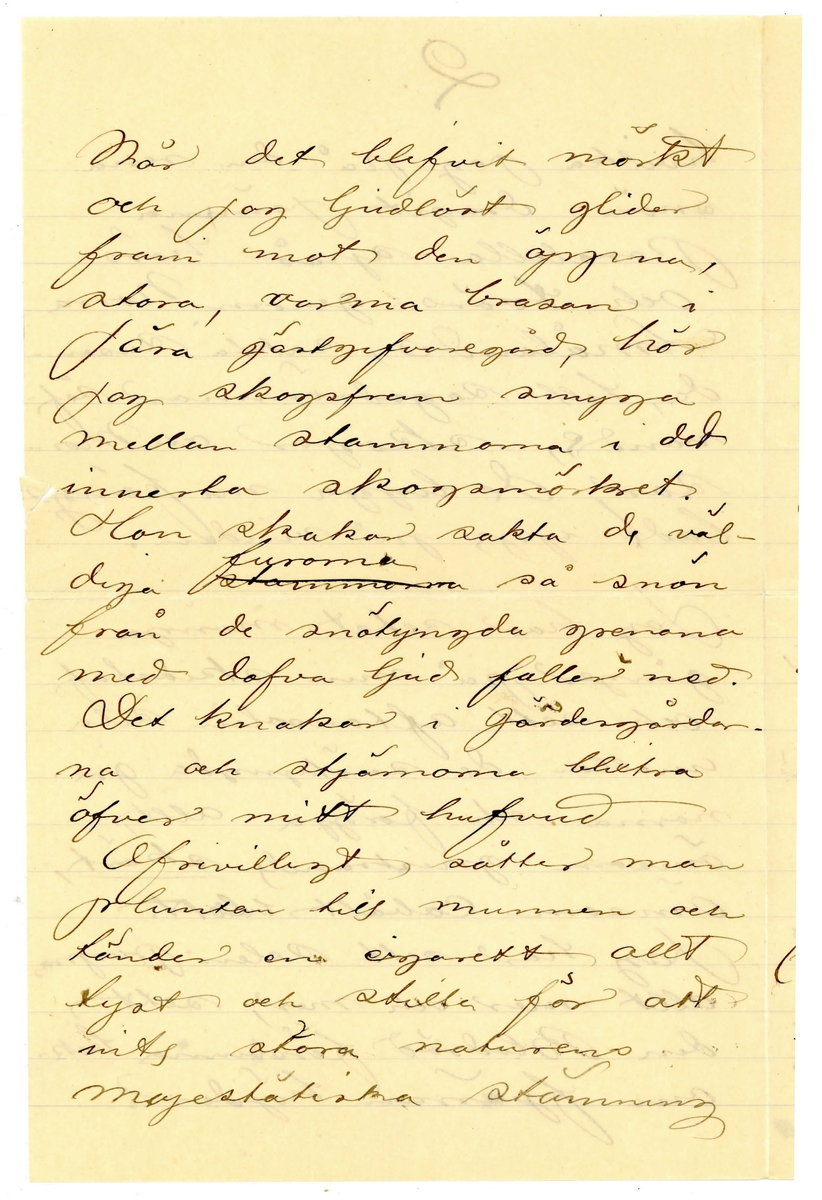 När det blifvit mörkt
och jag ljudlöst glider
fram mot den öppna,
stora, varma brasan i
Jära gästgifvaregård, hör
jag skogsfrun smyga
mellan stammarna i det
innersta skogsmörkret.
Hon skakar sakta de väl-
diga stammarna furorna så snön
från de snötyngda grenana
med dofva ljud faller ned.
Det knakar i gärdesgårdar-
na och stjärnorna blixtra
öfver mitt hufvud
Ofrivilligt sätter man
pluntan till munnen och
tänder en cigarett allt
tyst och stilla för att
inte störa naturens
majestätiska stämning